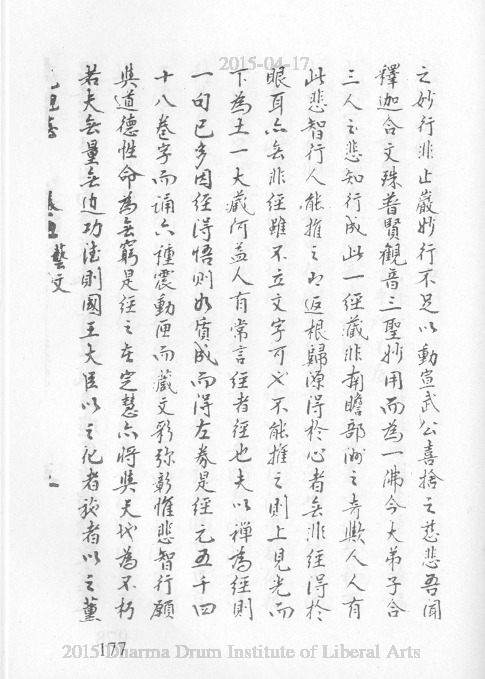 2015-04-17
之妙行非止嚴妙行不足以動宣武公喜捨之慈悲吾聞
釋迦合文殊普賢觀音三聖妙用而為一佛今大弟子合
三人之悲知行成此一經藏非南瞻部洲之奇歟人人有
此悲智行人能推之即返根歸源得於心者無非經得於
眼耳亦無非經雖不立文字可也不能推之則上見光而
下為土一大藏何益人有常言經者徑也夫以禪為經則
一句已多因經得悟則如質成而得左券是經元五千四
十八卷字而誦六種震動匣而藏文彩弥彰惟悲智行願
與道德性命為無窮是經之在定慧亦將與天地為不朽
若夫無量無邊功德則國王大臣以之記者教者以之薰
藝文
177
2015 Dharma Drum Institute of Liberal Arts